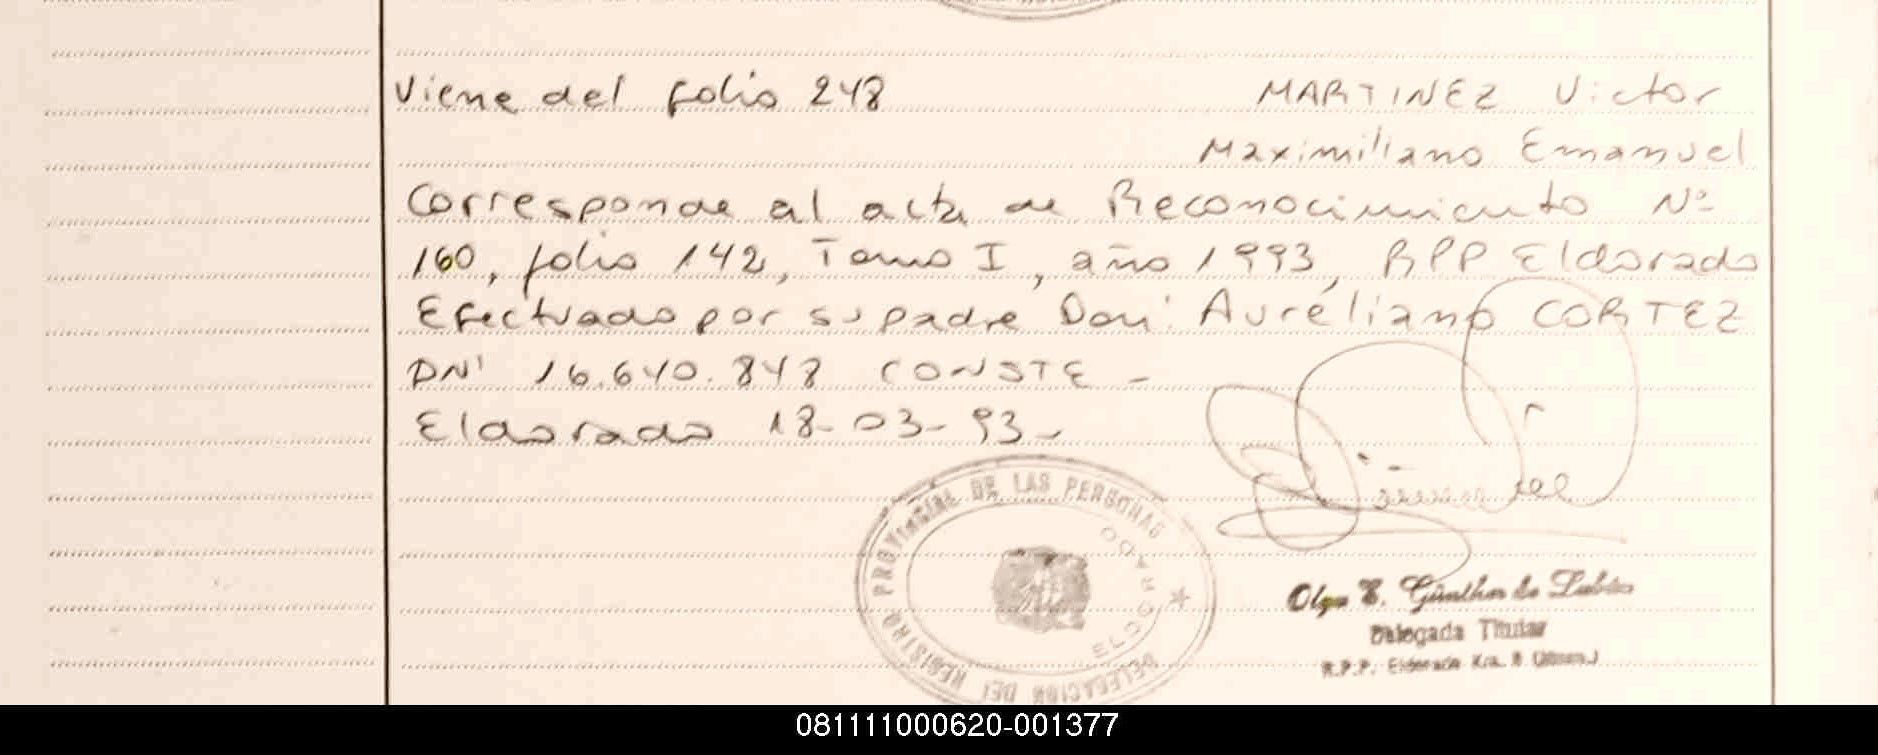 Viene del folio 248 MARTINEZ Victor
Maximiliano Emanuel
Corresponde al acta de Reconocimiento Nº
160, folio 142, Tomo I, año 1993, RPP Eldorado
Efectuado por su padre Don: Aureliano CORTEZ
DNI 16.640.848 CONSTE -
Eldorado 18-03-93-
DELEGACION DEL REGISTRO PROVINCIAL DE LAS PERSONAS
ELDORADO
Olga E. Günther de
Delegada Titular
R.P.P. Eldorado Km.
081111000620-001377